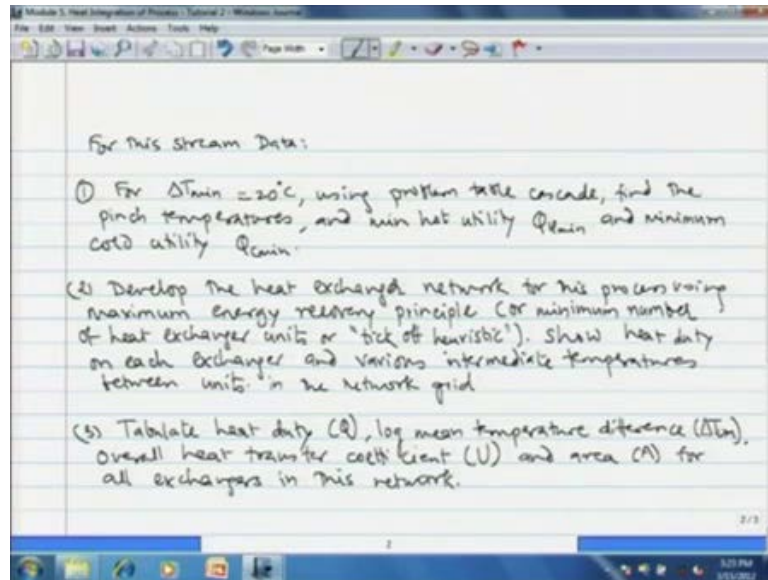 Module 5. Heat Integration of Process - Tutorial 2 - Windows Journal
File Edit View Insert Actions Tools Help
Page Width
For this stream Data:
① For ΔTmin = 20°C, using problem table cascade, find the
pinch temperatures, and min hot utility QHmin and minimum
cold utility QCmin.
(2) Develop the heat exchanger network for this process using
maximum energy recovery principle (or minimum number
of heat exchanger units or "tick off heuristic"). Show heat duty
on each exchanger and various intermediate temperatures
between units in the network grid
(3) Tabulate heat duty (Q), log mean temperature diference (ΔTLm),
overall heat transfer coefficient (U) and area (A) for
all exchangers in this network.
2/3
2
3:23 PM
3/13/2012